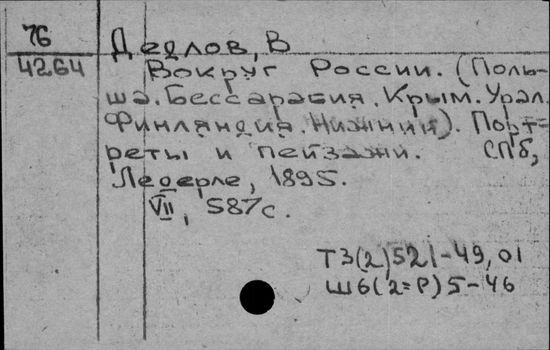 76
4264
Дедлов, В
Вокруг России. (Поль-
ша. Бессарабия. Крым. Урал.
Финляндия. Нижний). Порт=
реты и пейзажи. СПб,
Ледерле, 1895.
VII, 587с.
Т3(2)521-49,01
Ш6(2=Р)5-46